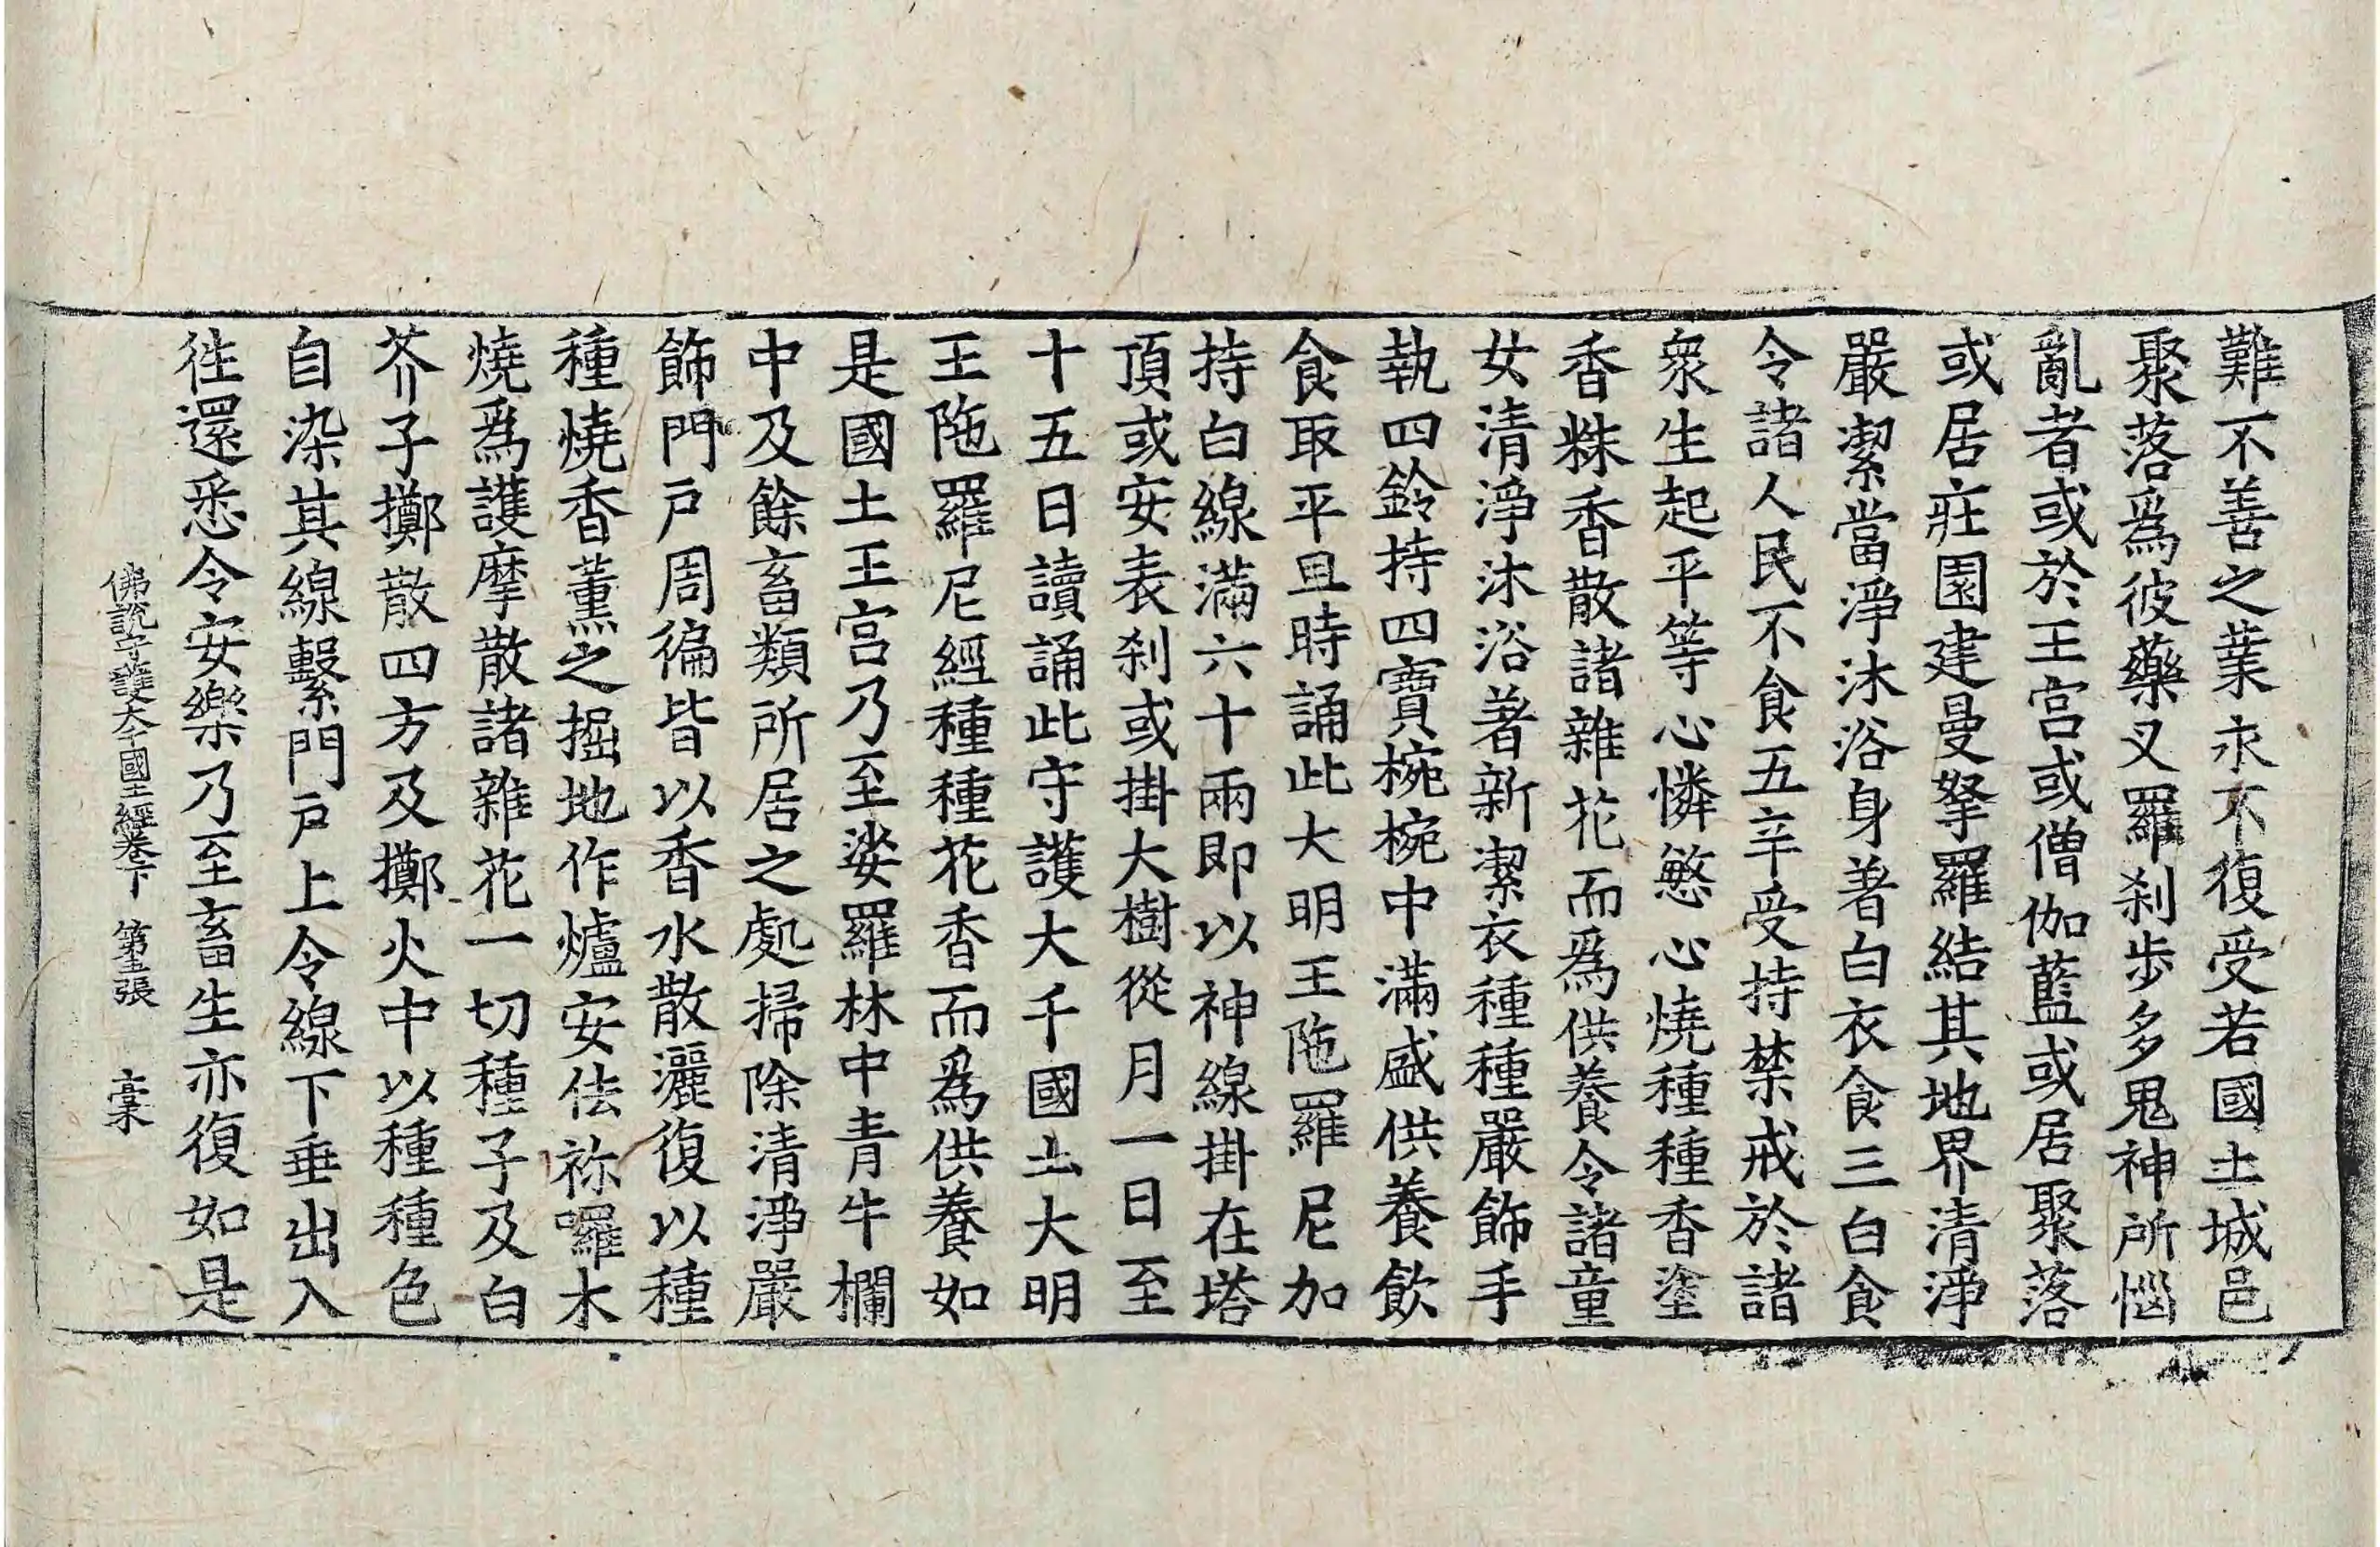 難不善之業永不復受若國土城邑
聚落爲彼藥叉羅刹步多鬼神所惱
亂者或於王宫或僧伽藍或居聚落
或居莊園建曼拏羅結其地界清淨
嚴潔當淨沐浴身著白衣食三白食
令諸人民不食五辛受持禁戒於諸
衆生起平等心憐慜心燒種種香塗
香粖香散諸雜花而爲供養令諸童
女清淨沐浴著新潔衣種種嚴飾手
執四鈴持四寶椀椀中滿盛供養飲
食取平旦時誦此大明王陁羅尼加
持白線滿六十兩即以神線掛在塔
頂或安表刹或掛大樹從月一日至
十五日讀誦此守護大千國土大明
王陁羅尼經種種花香而爲供養如
是國土王宫乃至娑羅林中青牛欄
中及餘畜類所居之處掃除清淨嚴
飾門戶周徧皆以香水散灑復以種
種燒香薰之掘地作爐安佉祢囉木
燒爲護摩散諸雜花一切種子及白
芥子擲散四方及擲火中以種種色
自染其線繫門戶上令線下垂出入
徃還悉令安樂乃至畜生亦復如是
佛說守護大千國土經卷下 第 張 槀